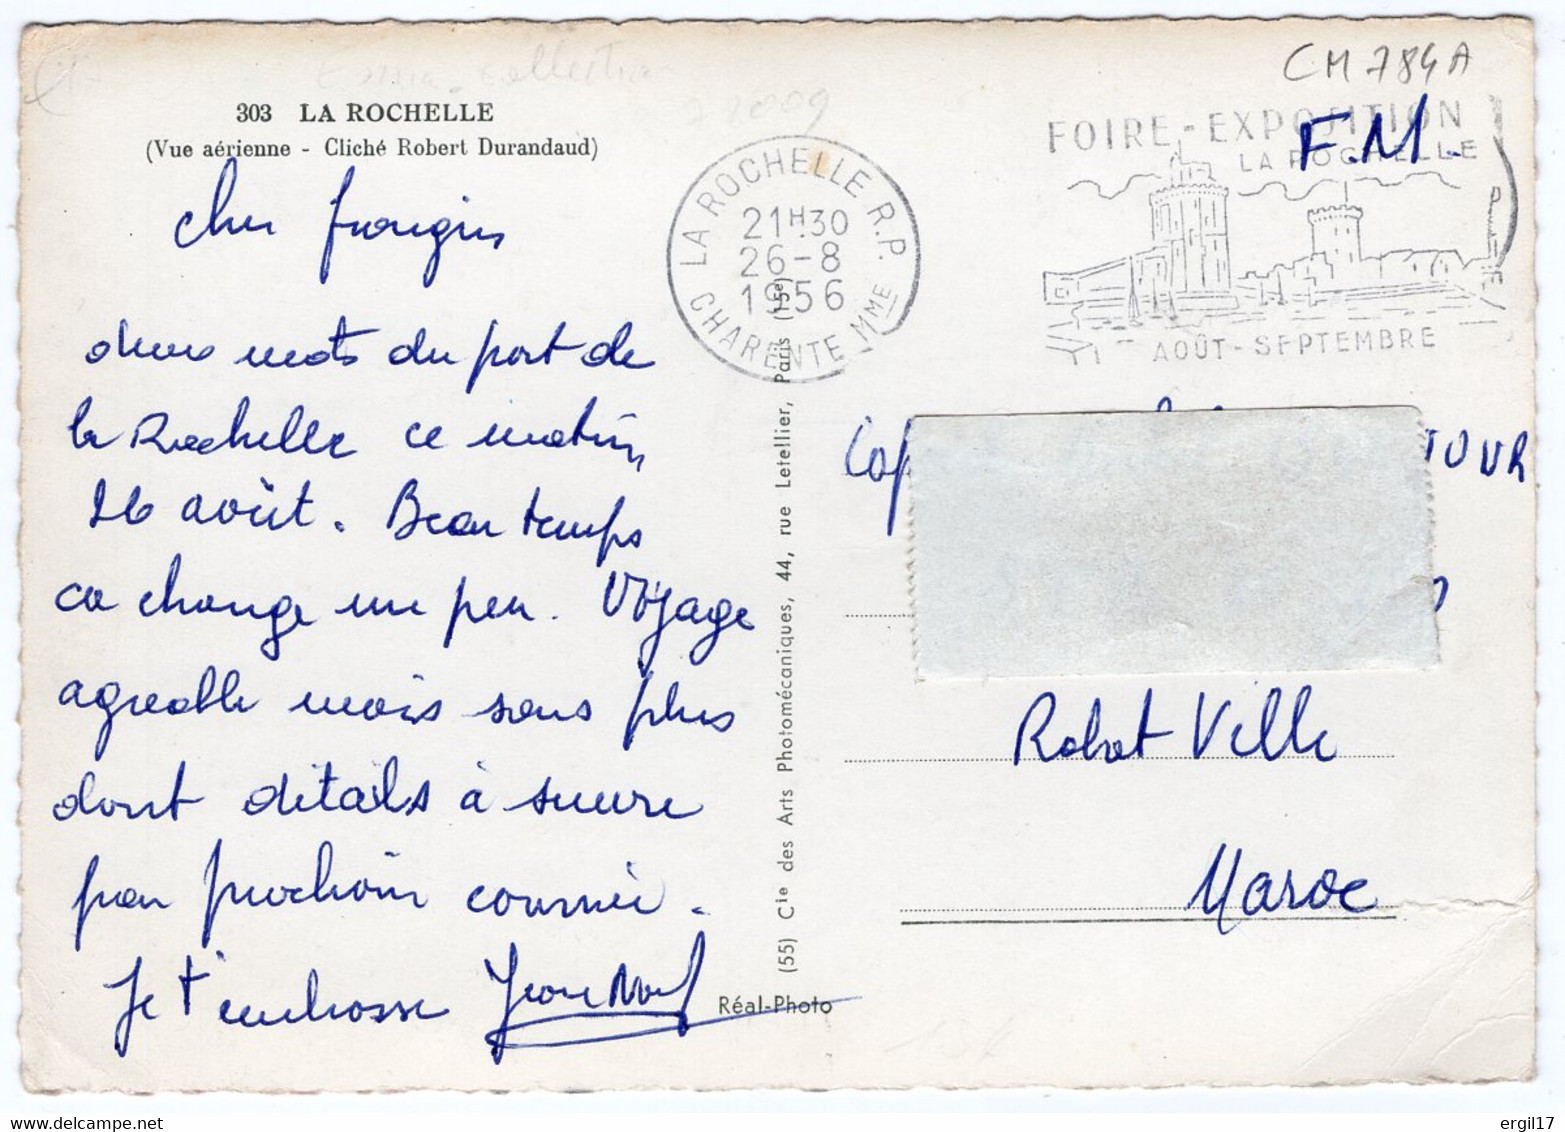 CM 784A
303 LA ROCHELLE
(Vue aérienne - Cliché Robert Durandaud)
LA ROCHELLE R.P.
21H30
26-8
1956
CHARENTE MME
FOIRE-EXPOSITION
LA ROCHELLE
AOÛT-SEPTEMBRE
F.M.
Cher frangin
deux mots du port de
la Rochelle ce matin
26 août. Beau temps
ca change un peu. Voyage
agreable mais sans plus
dont détails à suivre
par prochain courrier.
Je t'embrasse
Rabat Ville
Maroc
(55) Cie des Arts Photomécaniques, 44, rue Letellier, Paris (15e)
Réal-Photo
ergil17
delcampe.net